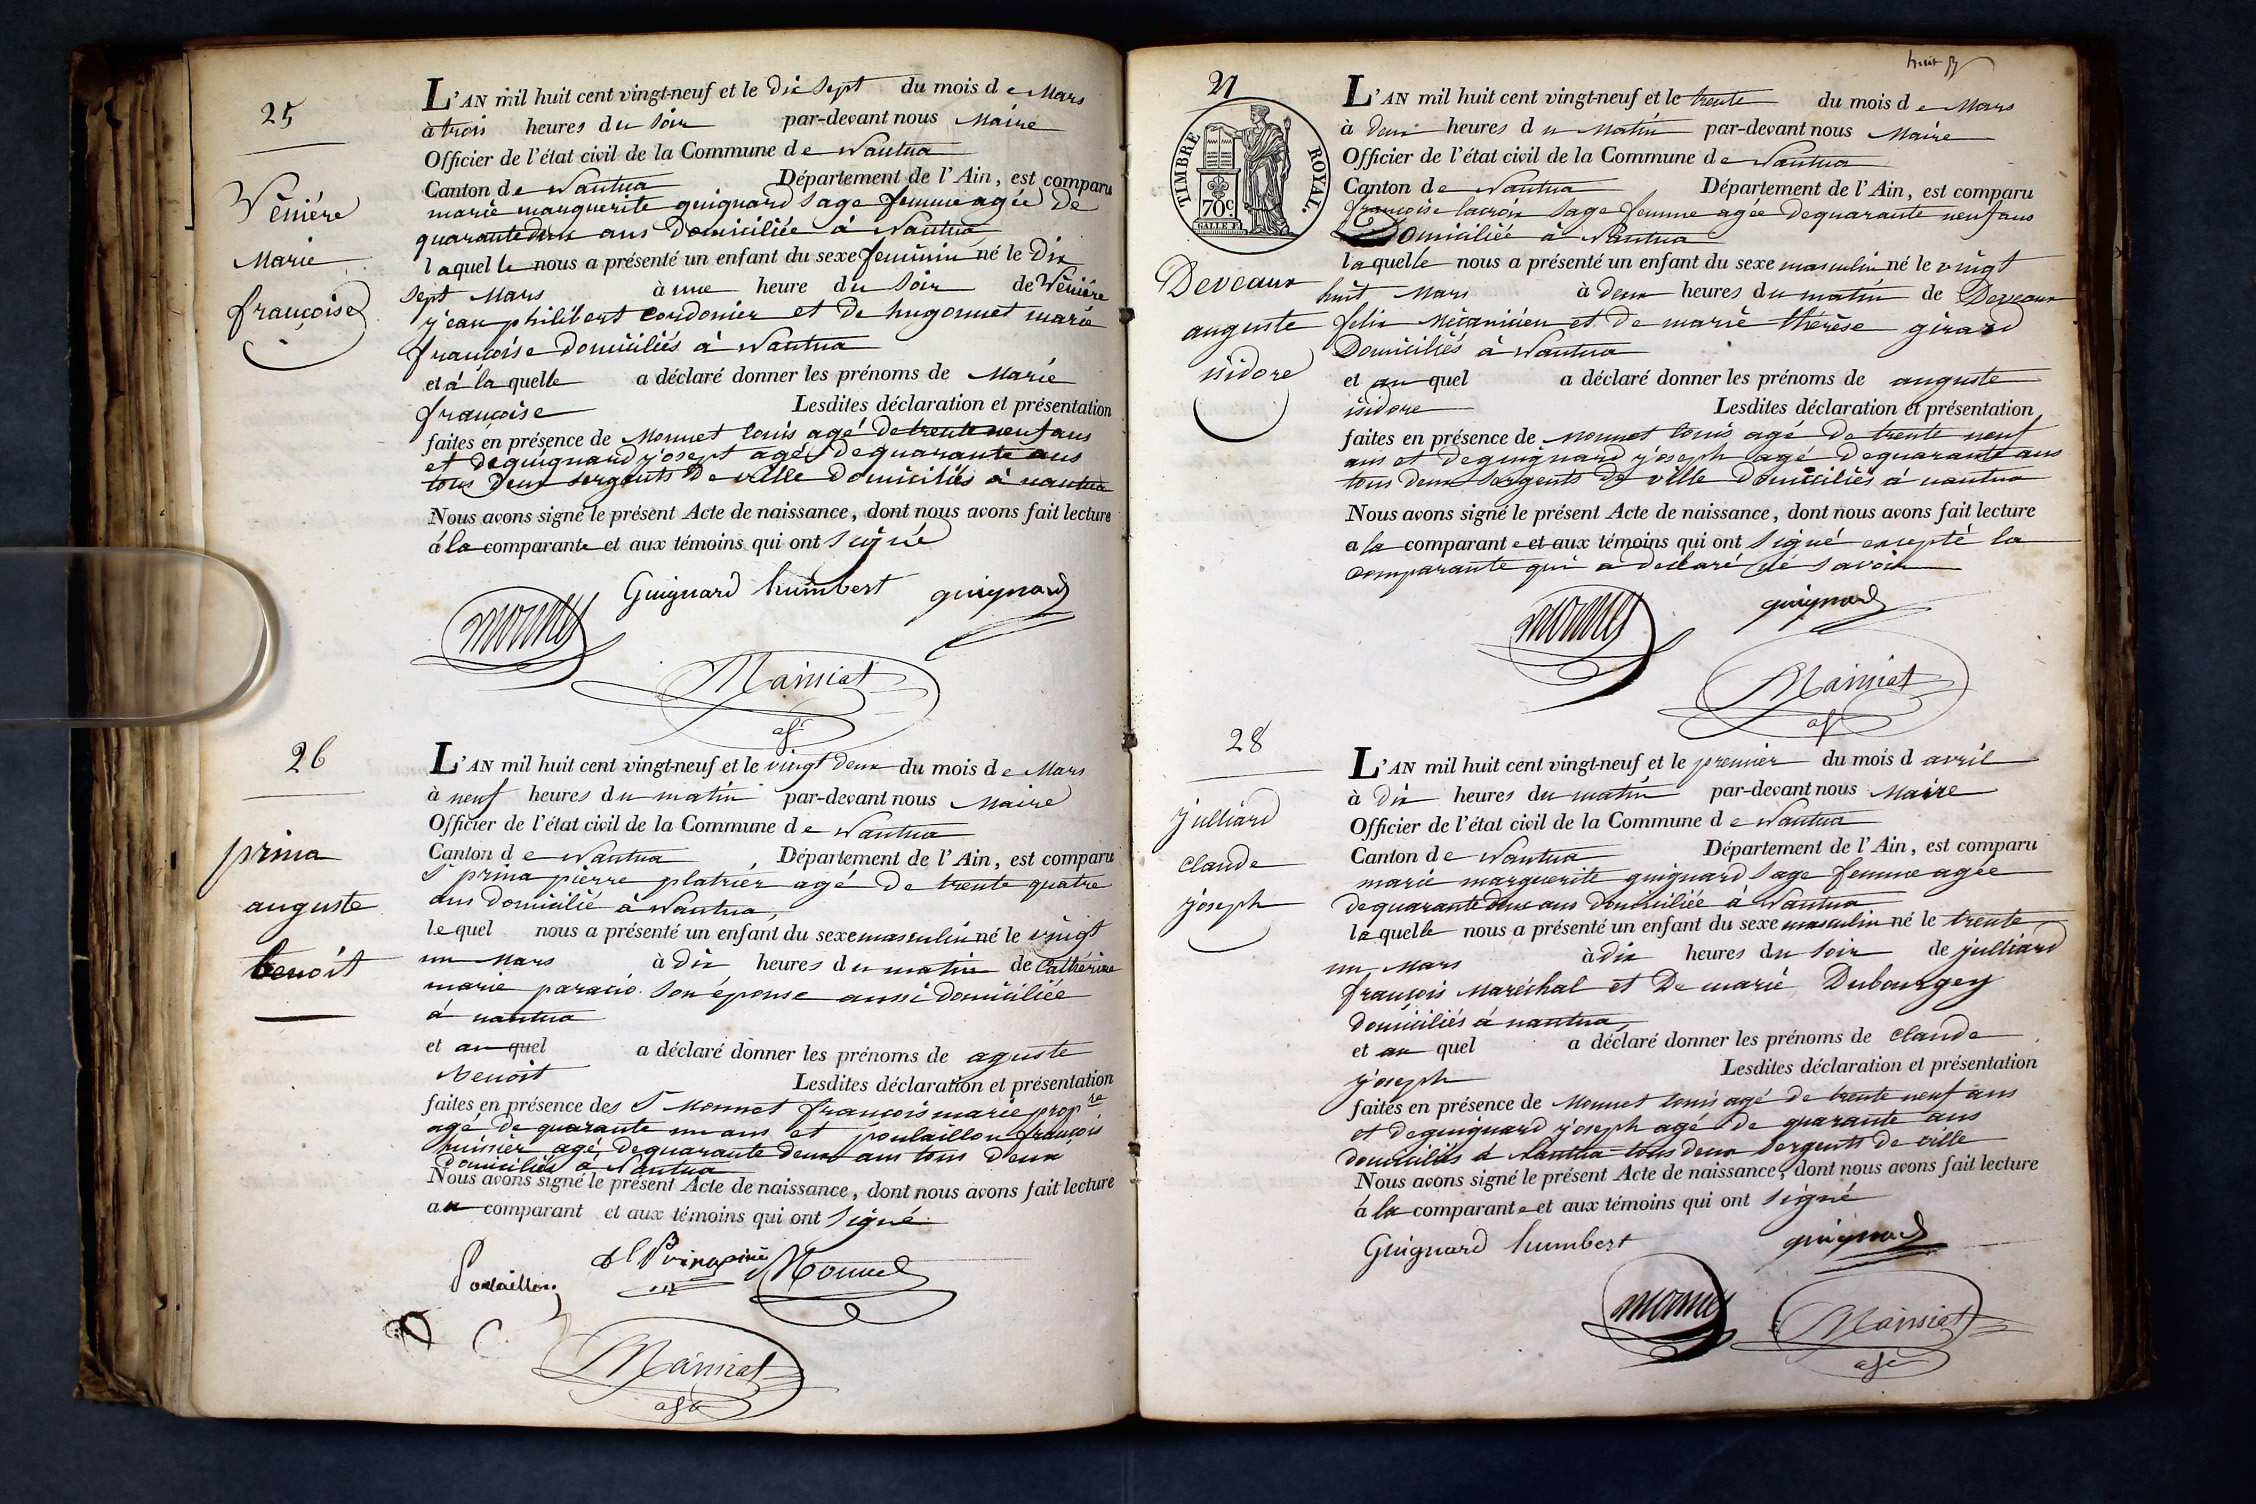 25
Vénière
Marie
françoise
L'AN mil huit cent vingt-neuf et le dix sept du mois de Mars
à trois heures du soir par-devant nous Maire
Officier de l'état civil de la Commune de Nantua
Canton de Nantua Département de l'Ain, est comparu
marie marguerite guignard sage femme agée de
quarante deux ans Domiciliée à Nantua
laquelle nous a présenté un enfant du sexe feminin né le Dix
sept Mars à une heure du soir de Vénière
jean philibert cordonier et de hugonnet marie
françoise domiciliés à Nantua
et à la quelle a déclaré donner les prénoms de Marie
françoise Lesdites déclaration et présentation
faites en présence de Monnet louis agé de trente neuf ans
et de guignard josept agé de quarante ans
tous deux sergents de ville domiciliés à nantua
Nous avons signé le présent Acte de naissance, dont nous avons fait lecture
à la comparante et aux témoins qui ont signé
Guignard humbert guignard
monnet
Mainiat
26
prina
auguste
benoit
L'AN mil huit cent vingt-neuf et le vingt deux du mois de Mars
à neuf heures du matin par-devant nous Maire
Officier de l'état civil de la Commune de Nantua
Canton de Nantua Département de l'Ain, est comparu
Sr prina pierre platrier agé de trente quatre
ans domicilié à Nantua,
lequel nous a présenté un enfant du sexe masculin né le vingt
un Mars à dix heures du matin de Cathérine
marie paracio son épouse aussi domiciliée
à nantua
et au quel a déclaré donner les prénoms de aguste
benoit Lesdites déclaration et présentation
faites en présence des Sr Monnet françois marie propre
agé de quarante un ans et poulaillon françois
huissier agé de quarante deux ans tous deux
domiciliés à Nantua
Nous avons signé le présent Acte de naissance, dont nous avons fait lecture
au comparant et aux témoins qui ont signé
Poulaillon Monnet
Mainiat
huit
27
TIMBRE ROYAL.
70c.
Deveaux
auguste
isidore
L'AN mil huit cent vingt-neuf et le trente du mois de Mars
à deux heures du Matin par-devant nous Maire
Officier de l'état civil de la Commune de Nantua
Canton de Nantua Département de l'Ain, est comparu
françoise lacroix sage femme agée de quarante neuf ans
Domiciliée à Nantua
laquelle nous a présenté un enfant du sexe masculin né le vingt
huit Mars à deux heures du matin de Deveaux
felix Mécanicien et de marie thérèse girard
Domiciliés à Nantua
et au quel a déclaré donner les prénoms de auguste
isidore Lesdites déclaration et présentation
faites en présence de monnet louis agé de trente neuf
ans et de guignard joseph agé de quarante ans
tous deux sergents de ville domiciliés à nantua
Nous avons signé le présent Acte de naissance, dont nous avons fait lecture
a la comparante et aux témoins qui ont signé excepté la
comparante qui a déclaré ne savoir
monnet guignard
Mainiat
28
julliard
claude
joseph
L'AN mil huit cent vingt-neuf et le premier du mois d avril
à dix heures du matin par-devant nous Maire
Officier de l'état civil de la Commune de Nantua
Canton de Nantua Département de l'Ain, est comparu
marie marguerite guignard sage femme agée
de quarante deux ans domiciliée à Nantua
laquelle nous a présenté un enfant du sexe masculin né le trente
un Mars à dix heures du soir de julliard
françois Maréchal et De marie Dubourgey
domiciliés à nantua
et au quel a déclaré donner les prénoms de claude
joseph Lesdites déclaration et présentation
faites en présence de Monnet louis agé de trente neuf ans
et de guignard joseph agé de quarante ans
domiciliés à Nantua tous deux sergents de ville
Nous avons signé le présent Acte de naissance, dont nous avons fait lecture
à la comparante et aux témoins qui ont signé
Guignard humbert guignard
monnet Mainiat